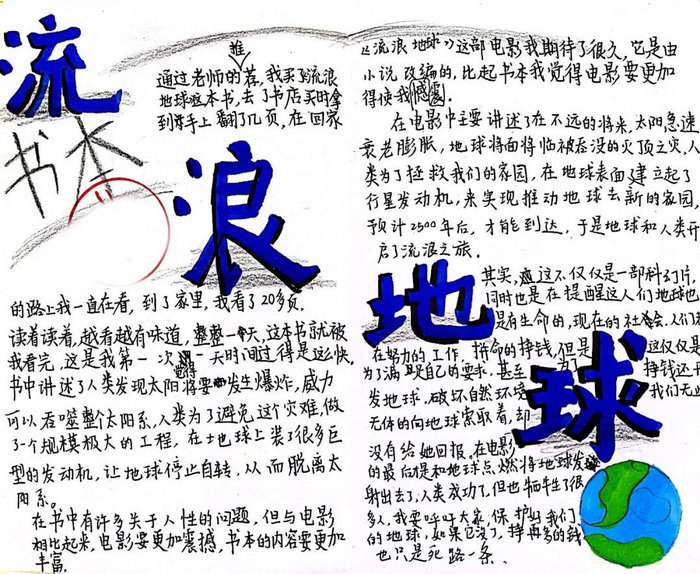 流
浪
地
球
书本
推
通过老师的荐,我买了流浪
地球这本书,去了书店买时拿
到手上翻了几页,在回家
的路上我一直在看,到了家里,我看了20多页,
读着读着,越看越有味道,整整一个天,这本书就被
我看完,这是我第一次觉得一天时间过得是这么快,
书中讲述了人类发现太阳将要发生爆炸,威力
可以吞噬整个太阳系,人类为了避免这个灾难,做
了一个规模极大的工程,在土地球上装了很多巨
型的发动机,让地球停止自转,从而脱离太
阳系。
在书中有许多关于人性的问题,但与电影
相比起来,电影要更加震撼,书本的内容要更加
丰富。
《流浪地球》这部电影我期待了很久,它是由
小说改编的,比起书本我觉得电影要更加
得使我感慨。
在电影中主要讲述了在不远的将来,太阳急速
衰老膨胀,地球将面将临被吞没的灭顶之灾,人
类为了拯救我们的家园,在地球表面建立起了
行星发动机,来实现推动地球去新的家园,
预计2500年后,才能到达,于是地球和人类开
启了流浪之旅。
其实,这不仅仅是一部科幻片,
同时也是在提醒这人们地球也
是有生命的,现在的社会,人们
在努力的工作,拼命的挣钱,但是这仅仅是
为了满足自己的要求,甚至为了挣钱还开
发地球,破坏自然环境我们无止
无休的向地球索取着,却
没有给她回报,在电影
的最后提和地球点燃将地球发
射出去了,人类成功了,但也牺牲了很
多人,我要呼吁大家,保护好我们
的地球,如果它没了,挣再多的钱
也只是死路一条。